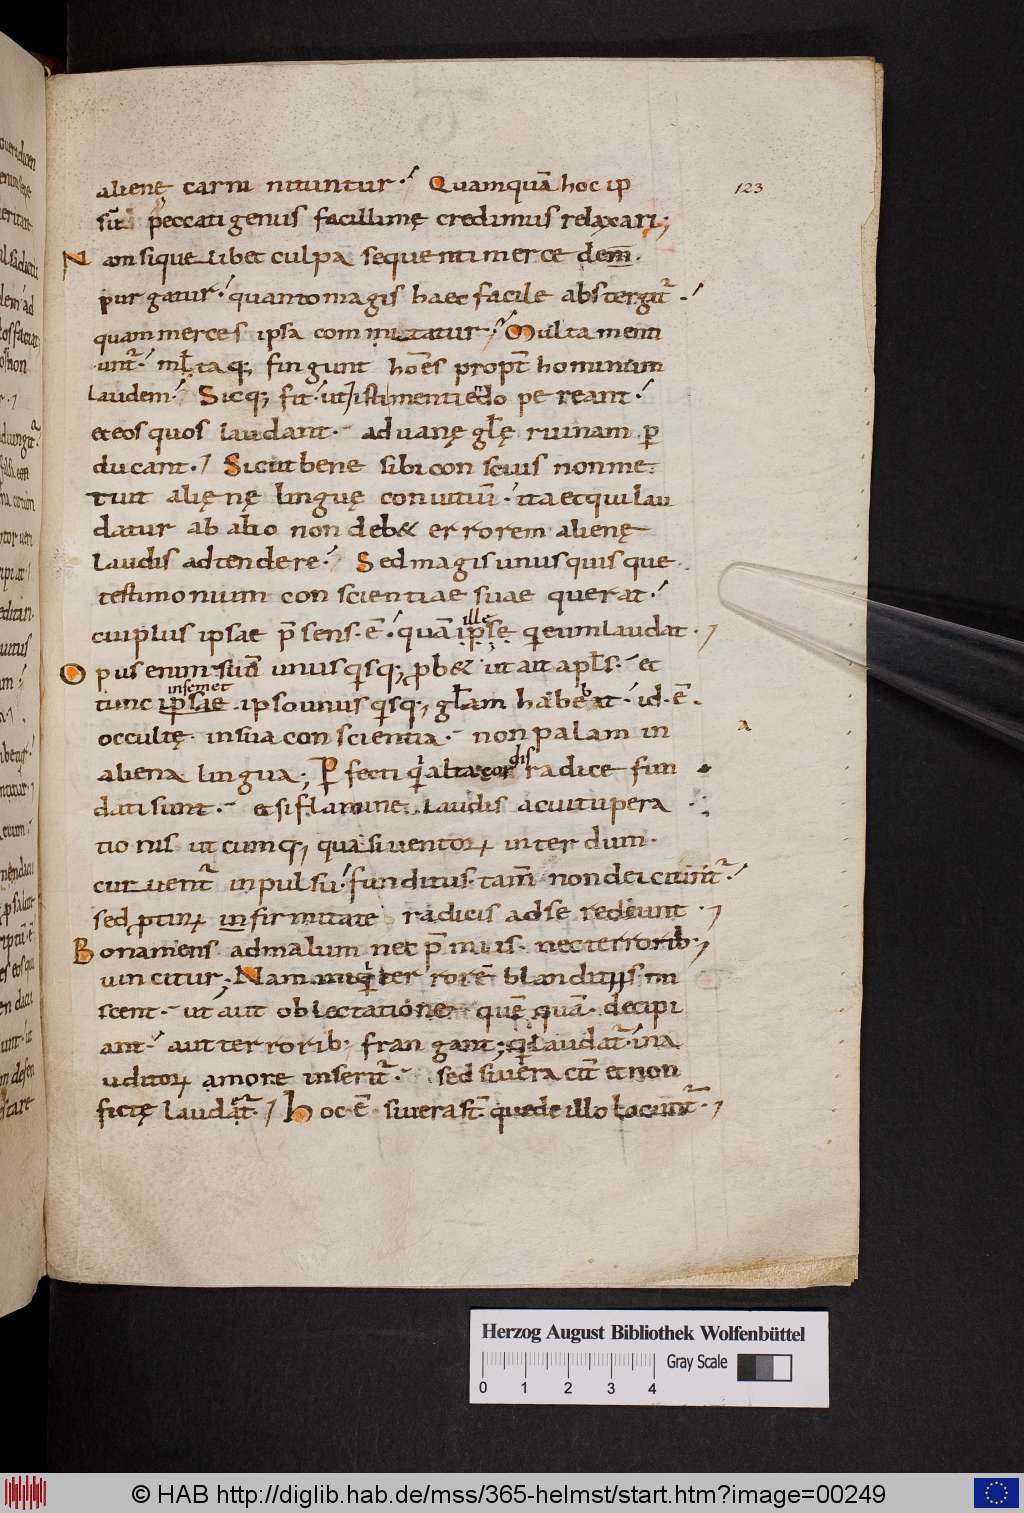 123
alienę carni nituntur. Quamquā hoc ip
sū peccati genus facillimę credimus relaxari;
Nam si quelibet culpa sequenti mercedem̄.
purgatur. quanto magis haec facile abstergit᷑.
quam merces ipsa commutatur. Multa menti
unt᷑. ml̄taq; fingunt hōēs propt̄ hominum
laudem. Sicq; fit. ut] isti mentiēdo pereant.
et eos quos laudant. ad vanę gl̄ę ruinam ꝑ
ducant. Sicut bene sibi conscius non me-
tuit alięnę linguę conuitiū. ita et qui lau
datur ab alio non deb& errorem alienę
laudis adtendere. Sed magis unusquisque
testimonium conscientiae suae querat.
illę
cui plus ipsae p̄sens. ē. quā ipsę q eum laudat.
Opus enim suū unusqsq; ꝓb& ut ait apl̄s. et
insemet
tunc ipsae. ipso unusqsq; gl̄am habebit. id. ē.
occultę. in sua conscientia. non palam in
A
aliena lingua; Pfecti q alta cordis radice fun
dati sunt. et si flamine laudis ac uitupera
tionis utcumq; quasi uentoꝝ interdum.
curuent᷑ inpulsū. funditus. tam̄ non deiciunt᷑.
sed ꝓtinꝰ in firmitate radicis ad se redeunt.
Bona mens ad malum nec p̄miis. nec terrorib;
uincitur; Nam iniq terrorē blanditiis mi
scent. ut aut oblectatione quēquā. decipi
ant. aut terrorib; frangant; q laudat᷑. in a
uditoꝝ amore inserit᷑. sed si uera cū et non
fictę laudat᷑. Hoc. ē si uera st̄ que de illo locunt᷑.
Herzog August Bibliothek Wolfenbüttel
Gray Scale
0 1 2 3 4
© HAB http://diglib.hab.de/mss/365-helmst/start.htm?image=00249